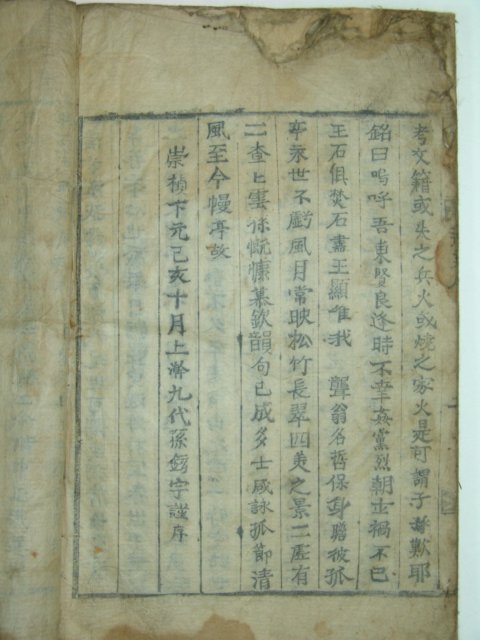 考文籍或失之兵火或燒之家火是可謂子孫歎耶
銘曰嗚呼吾東賢良逢時不幸姦黨烈朝士禍不已
王石俱焚石盡王顯唯我 聾翁名哲保身瞻彼孤
亭永世不虧風月常映松竹長翠四美之景二匠有
二查上雲孫慨慷慕欽韻句已成多士咸詠孤節清
風至今幔亭故
崇禎下元己亥十月上澣九代孫 宇謹序